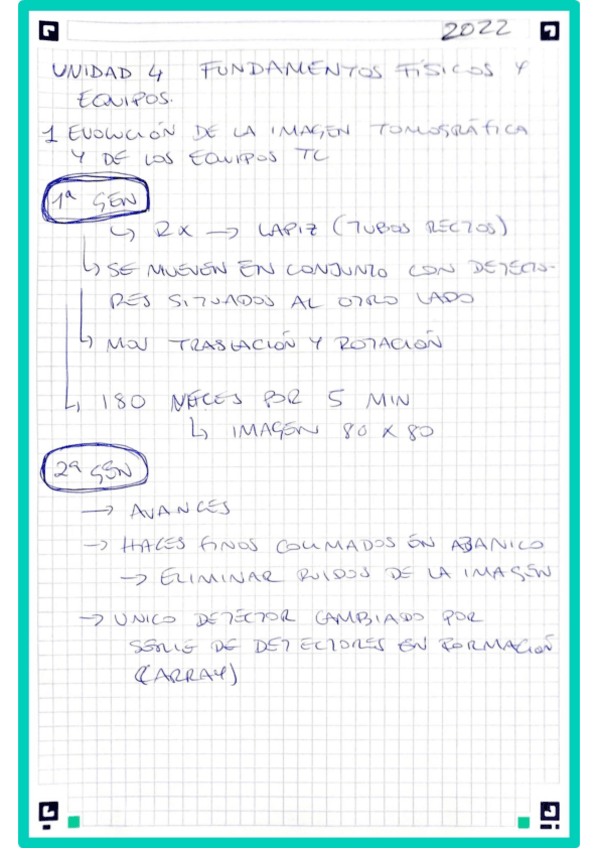 2022
UNIDAD 4 FUNDAMENTOS FÍSICOS Y
EQUIPOS.
1 EVOLUCIÓN DE LA IMAGEN TOMOGRÁFICA
Y DE LOS EQUIPOS TC
1ª GEN
↳ RX → LAPIZ (TUBOS RECTOS)
↳ SE MUEVEN EN CONJUNTO CON DETECTO-
RES SITUADOS AL OTRO LADO
↳ MOV TRASLACIÓN Y ROTACIÓN
↳ 180 VECES POR 5 MIN
↳ IMAGEN 80 X 80
2ª GEN
→ AVANCES
→ HACES FINOS COLIMADOS EN ABANICO
→ ELIMINAR RUIDOS DE LA IMAGEN
→ UNICO DETECTOR CAMBIADO POR
SERIE DE DETECTORES EN FORMACIÓN
(ARRAY)